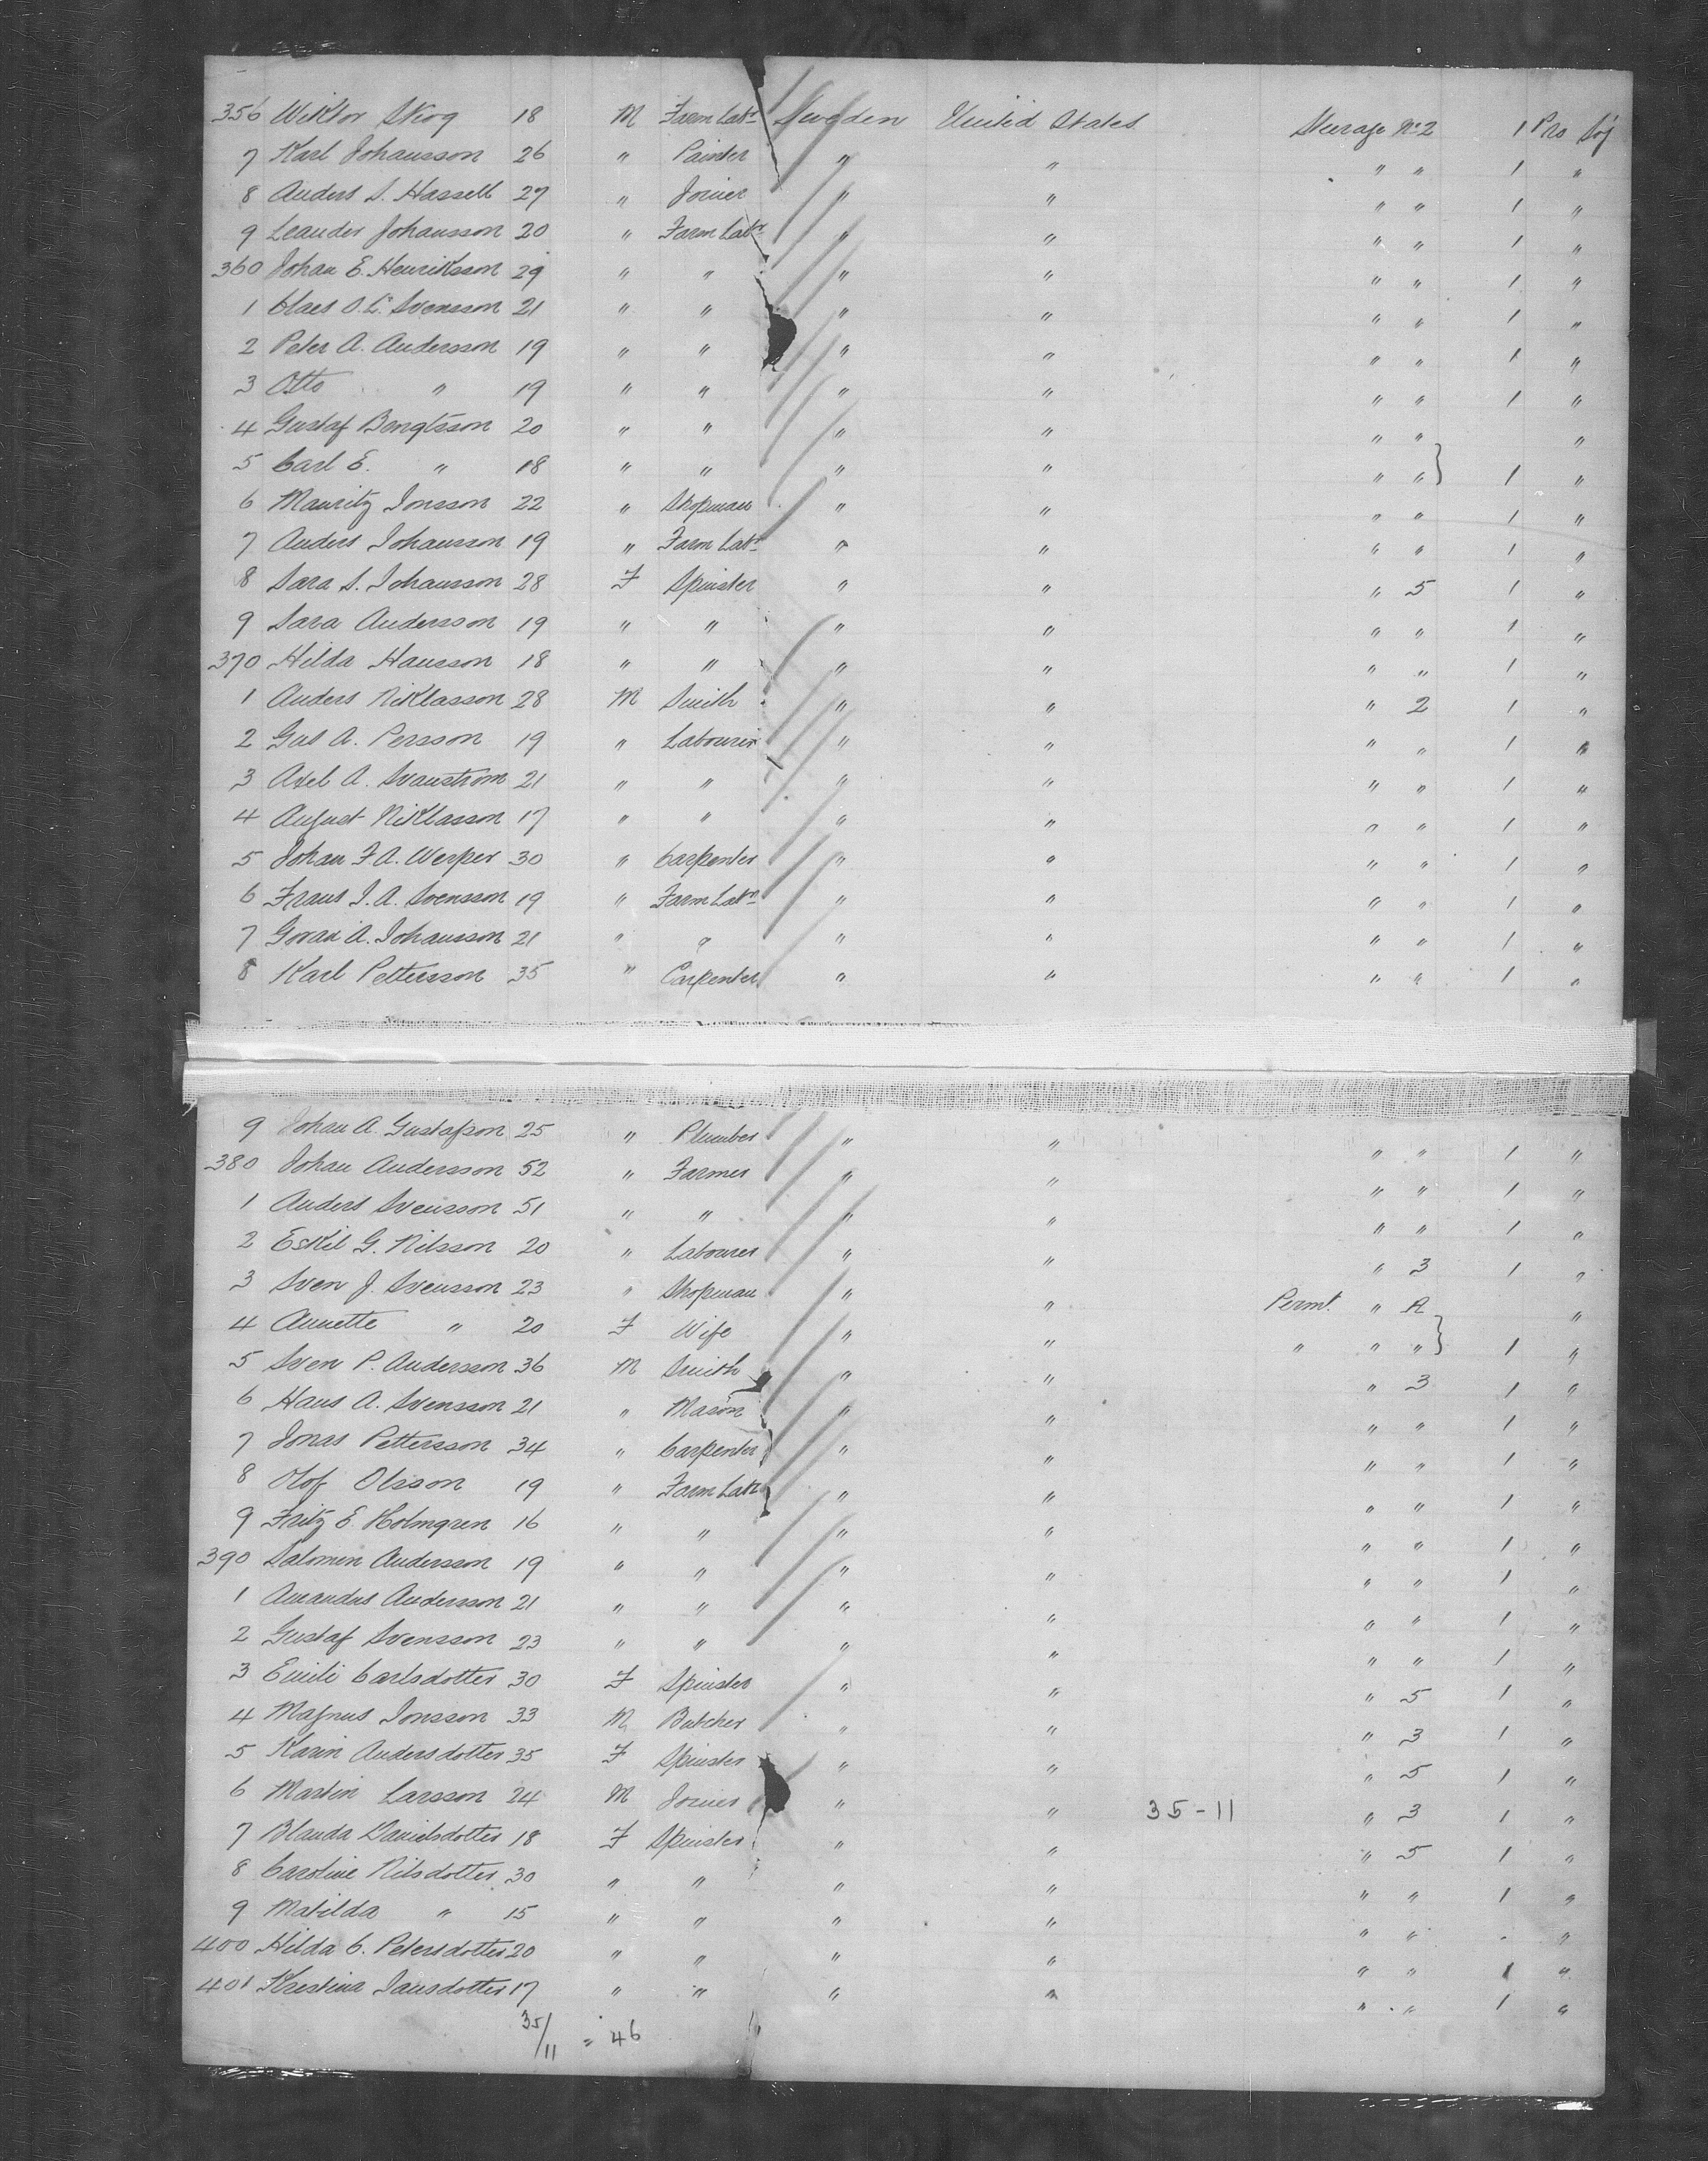 356 Wiktor Skog 18 M Farm Labr Sweden United States Steerage No 2 1 Pro Soj
7 Karl Johansson 26 " Painter " " " " 1 "
8 Anders S. Hassell 27 " Joiner " " " " 1 "
9 Leander Johansson 20 " Farm Labr " " " " 1 "
360 Johan E. Henriksson 29 " " " " " " 1 "
1 Claes O. L. Svensson 21 " " " " " " 1 "
2 Peter A. Andersson 19 " " " " " " 1 "
3 Otto " 19 " " " " " " 1 "
4 Gustaf Bengtsson 20 " " " " " " "
5 Carl E. " 18 " " " " " " } 1 "
6 Mauritz Jonsson 22 " Shopman " " " " 1 "
7 Anders Johansson 19 " Farm Labr " " " " 1 "
8 Sara S. Johansson 28 F Spinster " " " 5 1 "
9 Sara Andersson 19 " " " " " " 1 "
370 Hilda Hansson 18 " " " " " " 1 "
1 Anders Niklasson 28 M Smith " " " 2 1 "
2 Gus A. Persson 19 " Labourer " " " " 1 "
3 Axel A. Svanstrom 21 " " " " " " 1 "
4 August Niklasson 17 " " " " " " 1 "
5 Johan F. A. Werper 30 " Carpenter " " " " 1 "
6 Frans J. A. Svensson 19 " Farm Labr " " " " 1 "
7 Goran A. Johansson 21 " " " " " " 1 "
8 Karl Pettersson 35 " Carpenter " " " " 1 "
9 Johan A. Gustafson 25 " Plumber " " " " 1 "
380 Johan Andersson 52 " Farmer " " " " 1 "
1 Anders Svensson 51 " " " " " " 1 "
2 Eskil G. Nilsson 20 " Labourer " " " 3 1 "
3 Sven J. Svensson 23 " Shopman " " Permt. " R "
4 Annette " 20 F Wife " " " " " } 1 "
5 Sven P. Andersson 36 M Smith " " " 3 1 "
6 Hans A. Svensson 21 " Mason " " " " 1 "
7 Jonas Pettersson 34 " Carpenter " " " " 1 "
8 Olof Olsson 19 " Farm Labr " " " " 1 "
9 Fritz E. Holmgren 16 " " " " " " 1 "
390 Salomon Andersson 19 " " " " " " 1 "
1 Amandus Andersson 21 " " " " " " 1 "
2 Gustaf Svensson 23 " " " " " " 1 "
3 Emili Carlsdotter 30 F Spinster " " " 5 1 "
4 Magnus Jonsson 33 M Butcher " " " 3 1 "
5 Karin Andersdotter 35 F Spinster " " " 5 1 "
6 Martin Larsson 24 M Joiner " " 35-11 " 3 1 "
7 Blanda Danielsdotter 18 F Spinster " " " 5 1 "
8 Caroline Nilsdotter 30 " " " " " " 1 "
9 Matilda " 15 " " " " " " - "
400 Hilda C. Petersdotter 20 " " " " " " 1 "
401 Kristina Jansdotter 17 " " " " " " 1 "
35/11 = 46